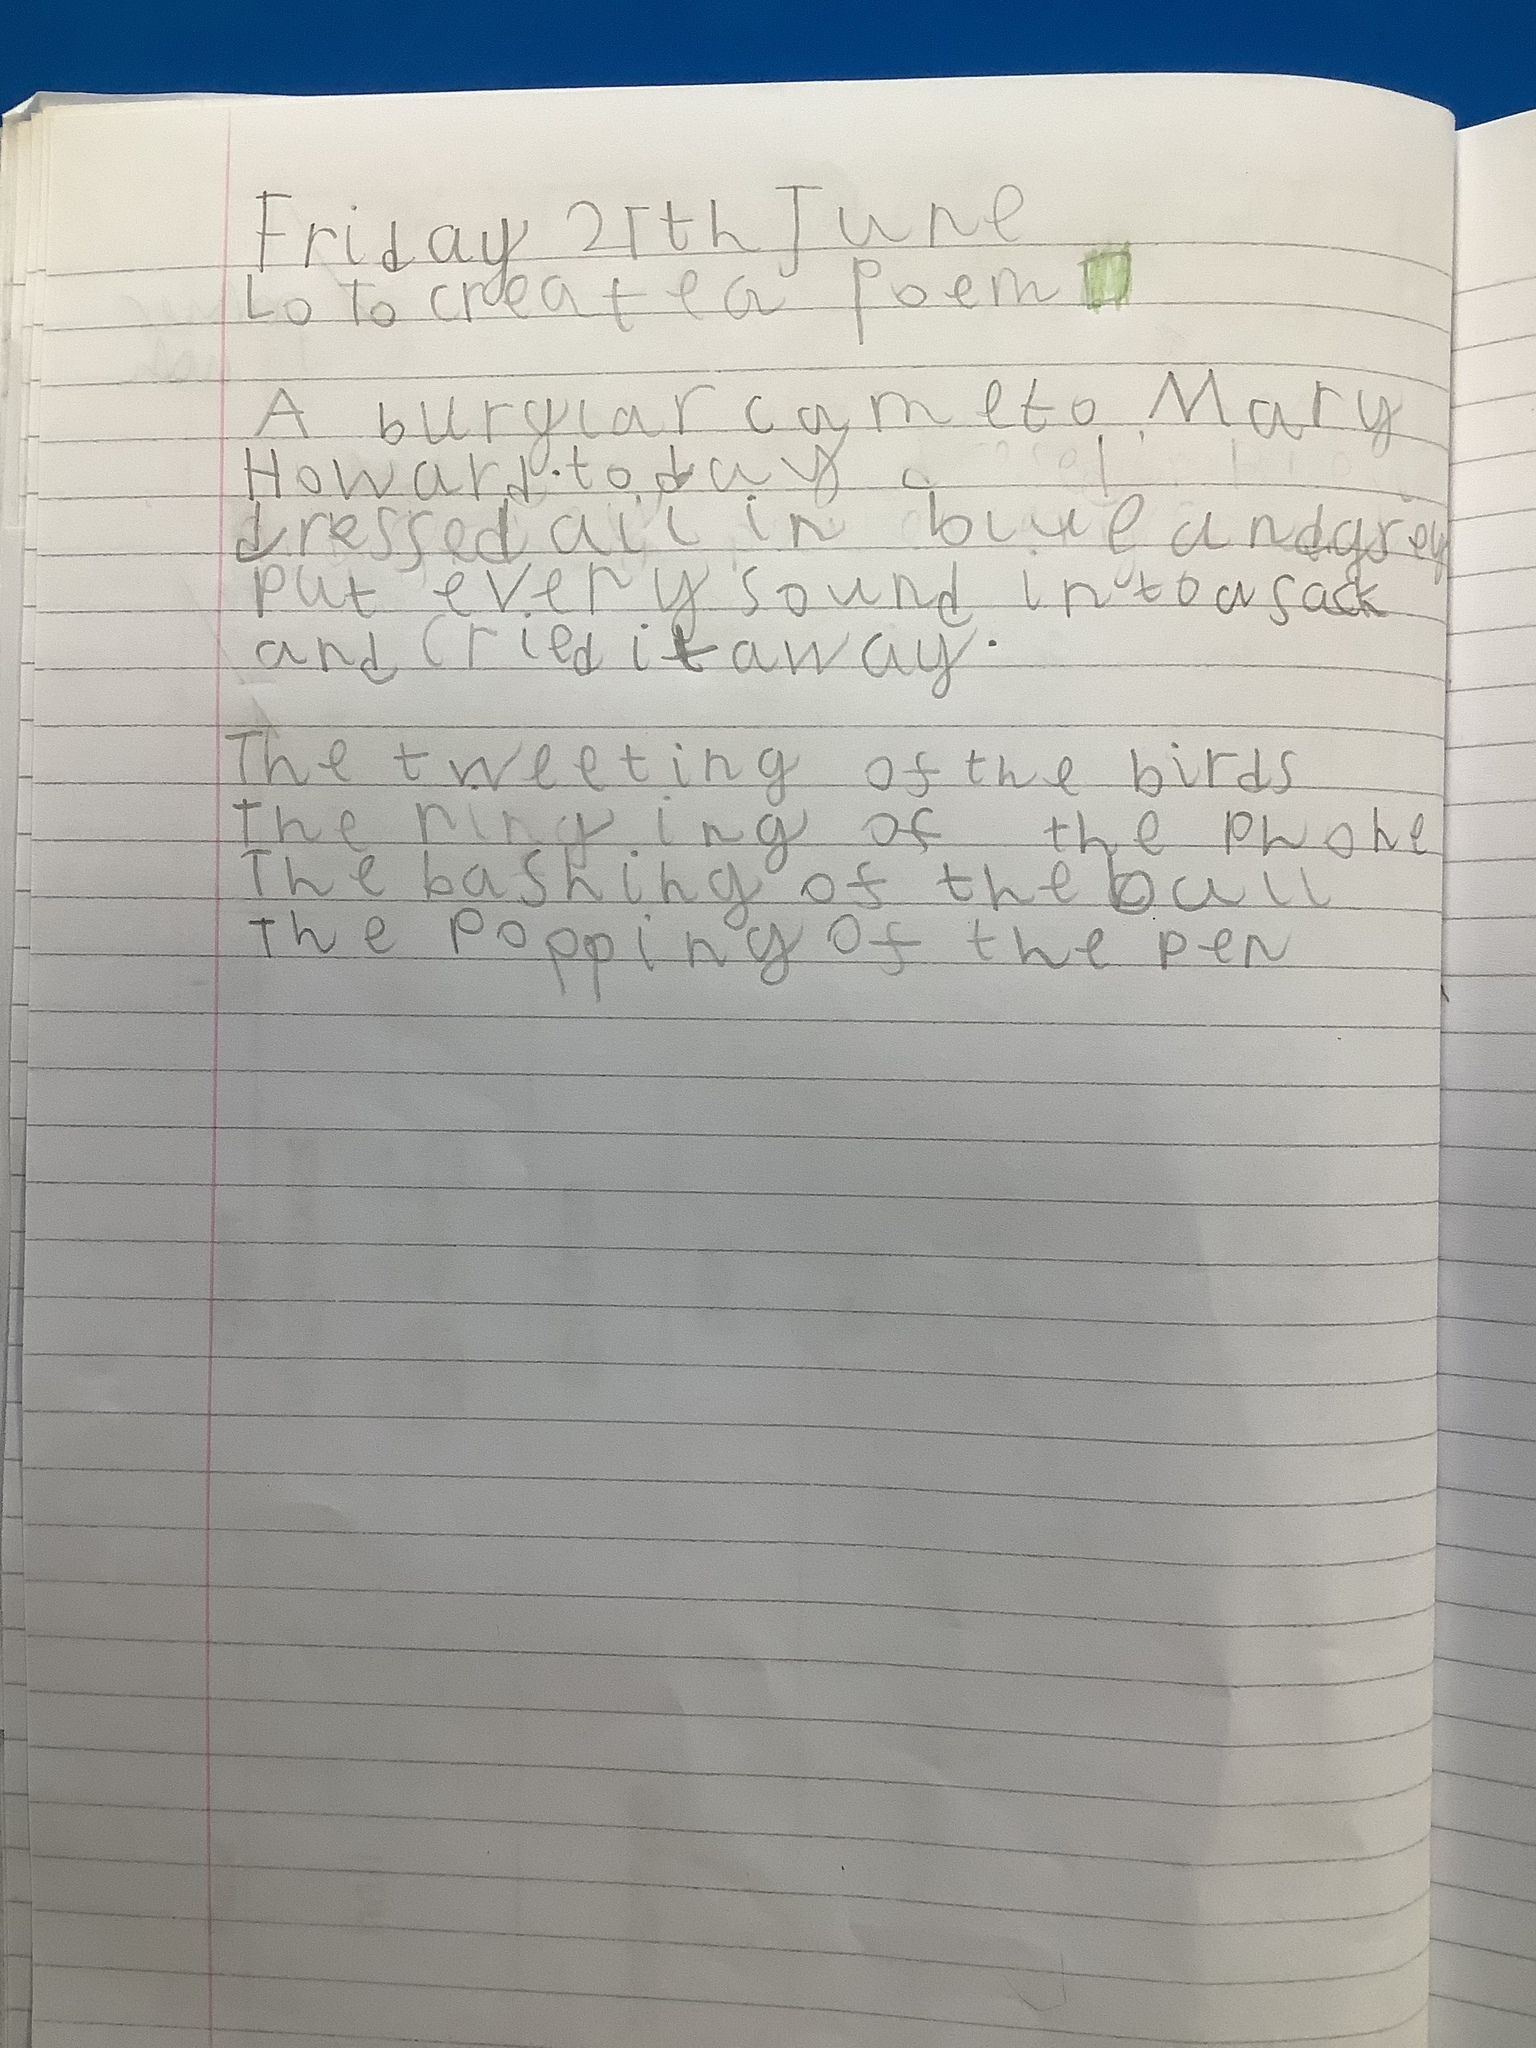 Friday 21th June
Lo To create a Poem
A burglar came to Mary
Howard today
dressed all in blue and grey
Put every sound into a sack
and cried it away.
The tweeting of the birds
The ringing of the phone
The bashing of the ball
The Popping of the pen